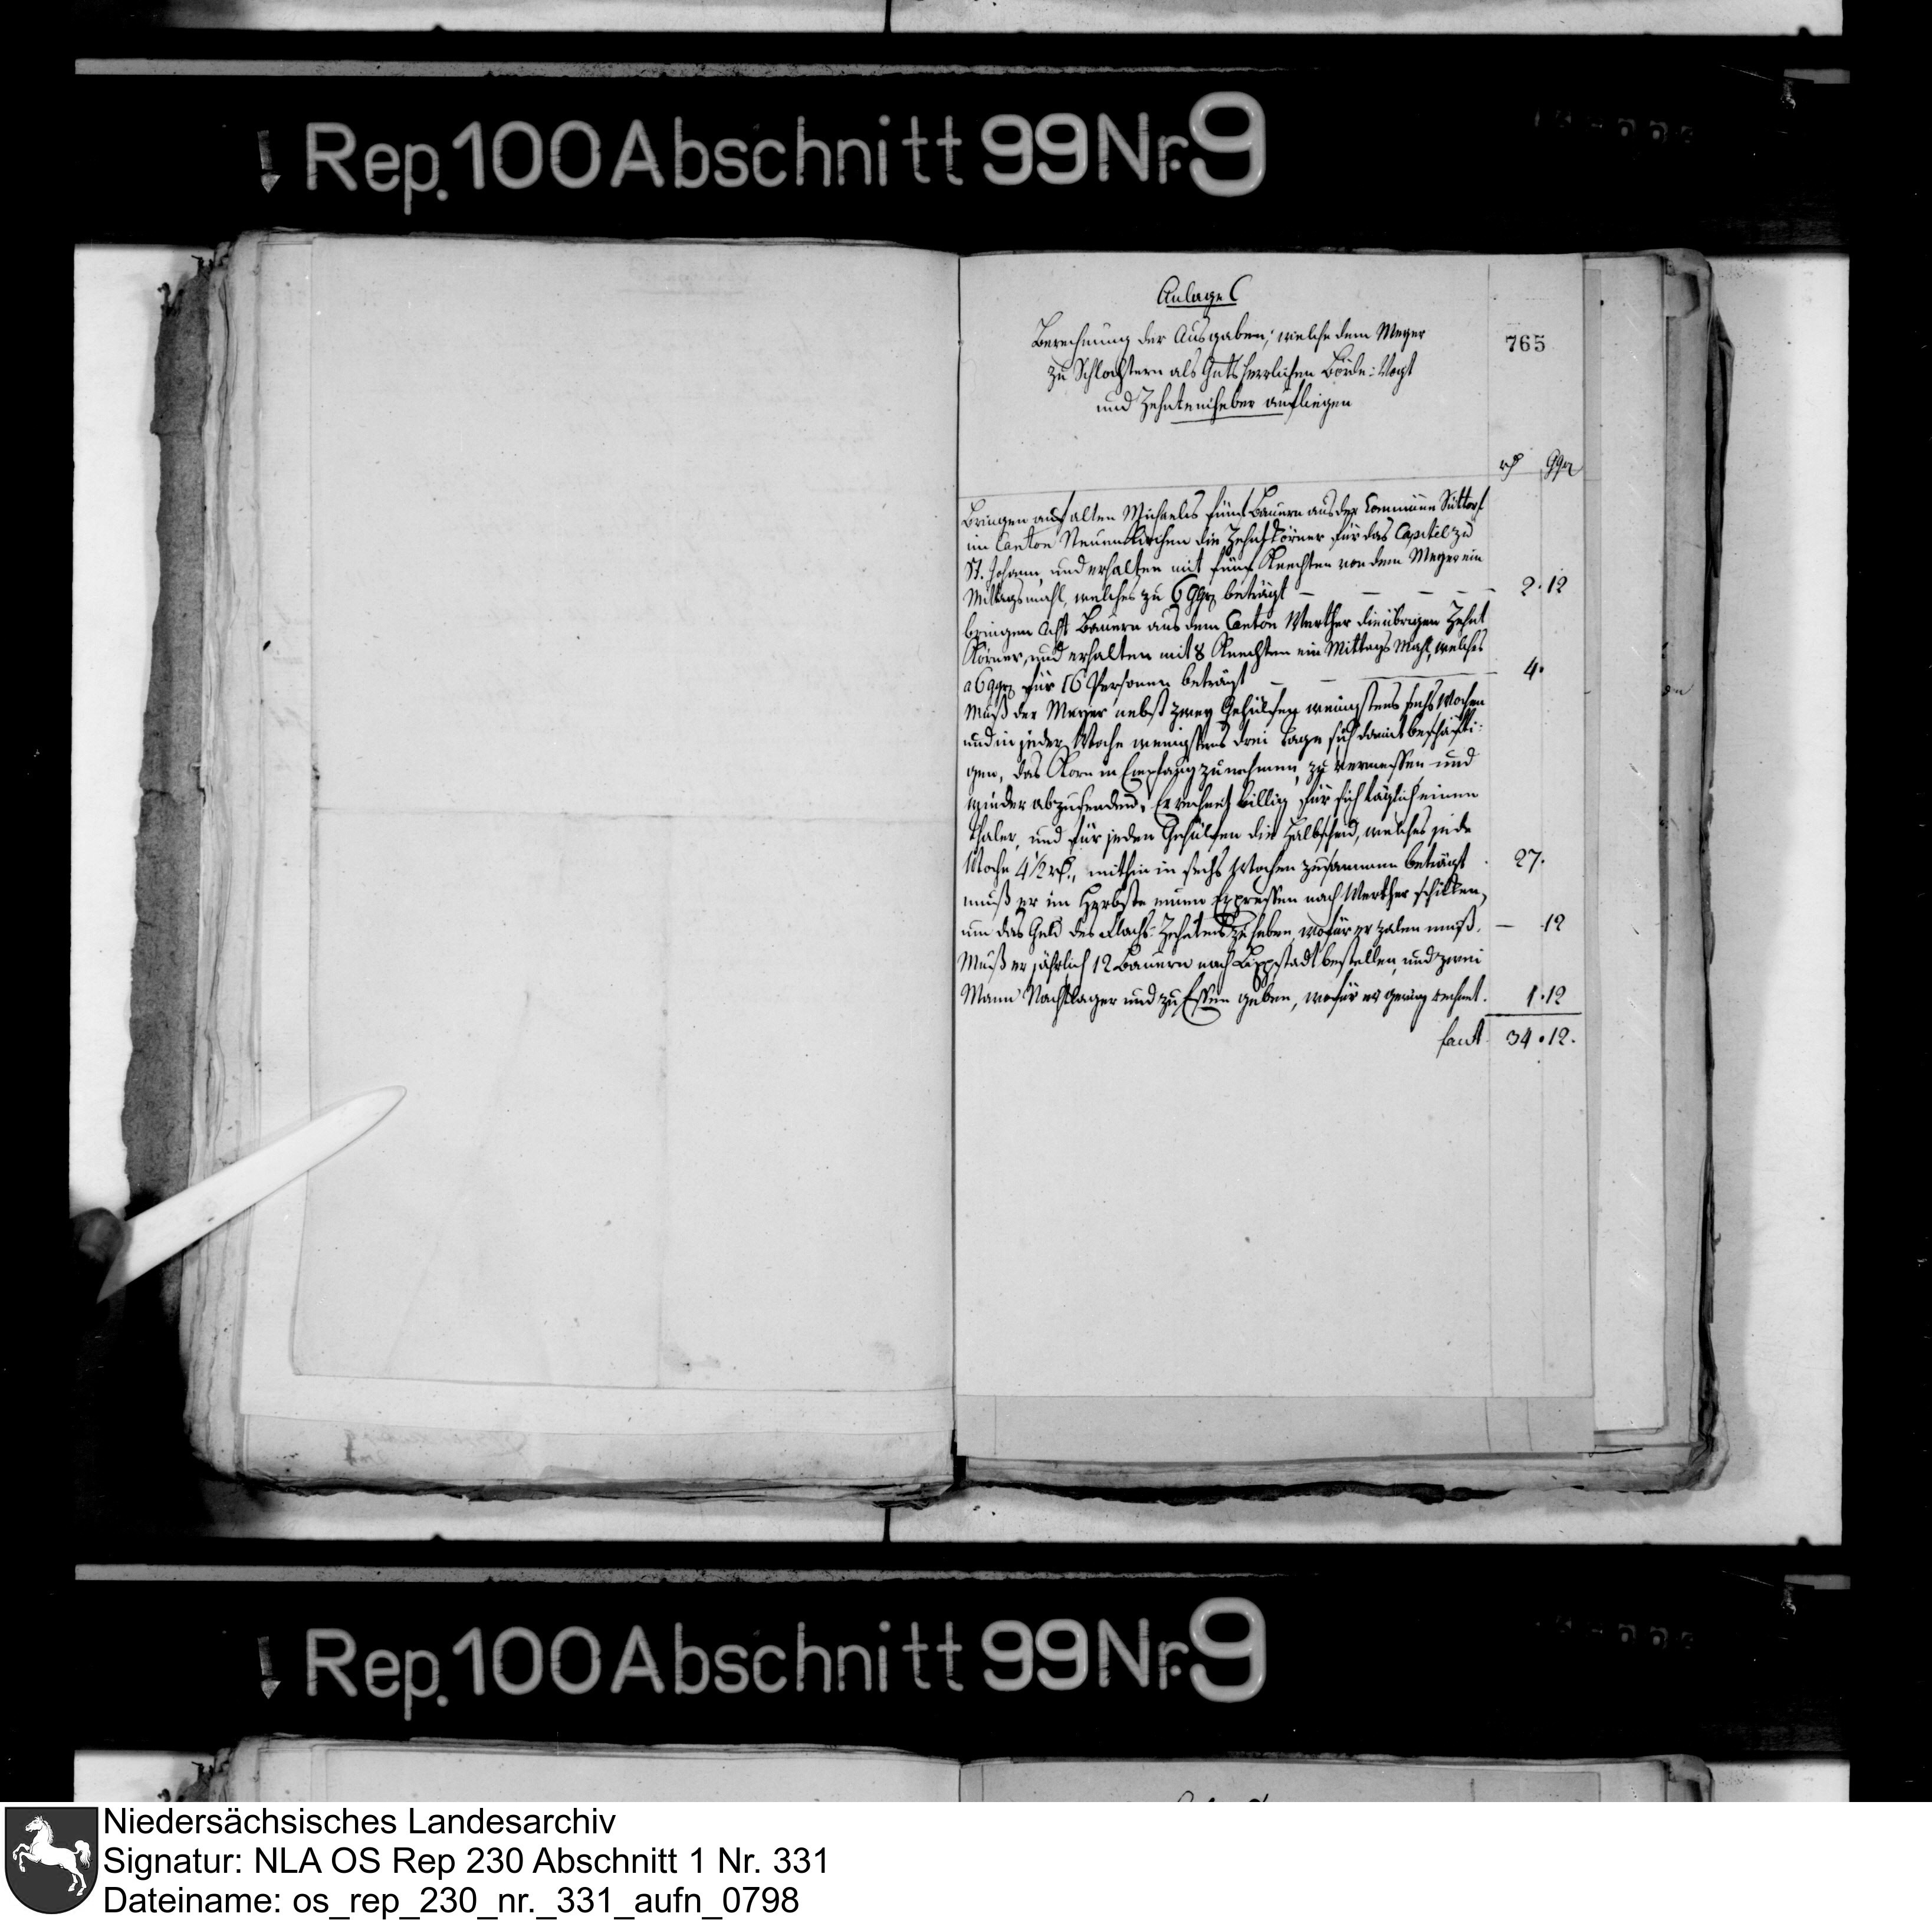 Rep. 100 Abschnitt 99 Nr. 9
Anlage C
765
Berechnung der Ausgaben, welche dem Meyer
zu Schlochtern als Gutsherrlichen Börde-Vogt
und Zehntenheber aufliegen
rth ggr
Bringen auf alten Michaelis fünf Bauern aus der Commüne Suttorf
im Canton Neuenkirchen die Zehntkörner für das Capitel zu
St. Johann, und erhalten mit fünf Knechten von dem Meyer ein
Mittagsmahl, welches zu 6 ggr beträgt — — — — 2. 12
bringen Acht Bauern aus dem Canton Werther die übrigen Zehnt
Körner, und erhalten mit 8 Knechten ein Mittags Mahl, welches
a 6 ggr für 16 Personen beträgt — — — 4.
Muß der Meyer nebst zwey Gehülfen wenigstens sechs Wochen
und in jeder Woche wenigstens drei Tage sich damit beschäfti-
gen, das Korn in Empfang zu nehmen, zu vermessen und
wieder abzusenden. Er rechnet billig für sich täglich einen
Thaler, und für jeden Gehülfen die Halbscheid, welches jede
Woche 4 1/2 rth., mithin in sechs Wochen zusammen beträgt . 27.
muß er im Herbste einen Expressen nach Werther schikken,
um das Geld des Flachs-Zehntens zu heben, wofür er zalen muß. — 12
Muß er jährlich 12 Bauern nach Lippstadt bestellen, und zwei
Mann Nachtlager und zu Essen geben, wofür er gering rechnet. 1. 12
facit 34. 12.
Rep. 100 Abschnitt 99 Nr. 9
Niedersächsisches Landesarchiv
Signatur: NLA OS Rep 230 Abschnitt 1 Nr. 331
Dateiname: os_rep_230_nr._331_aufn_0798